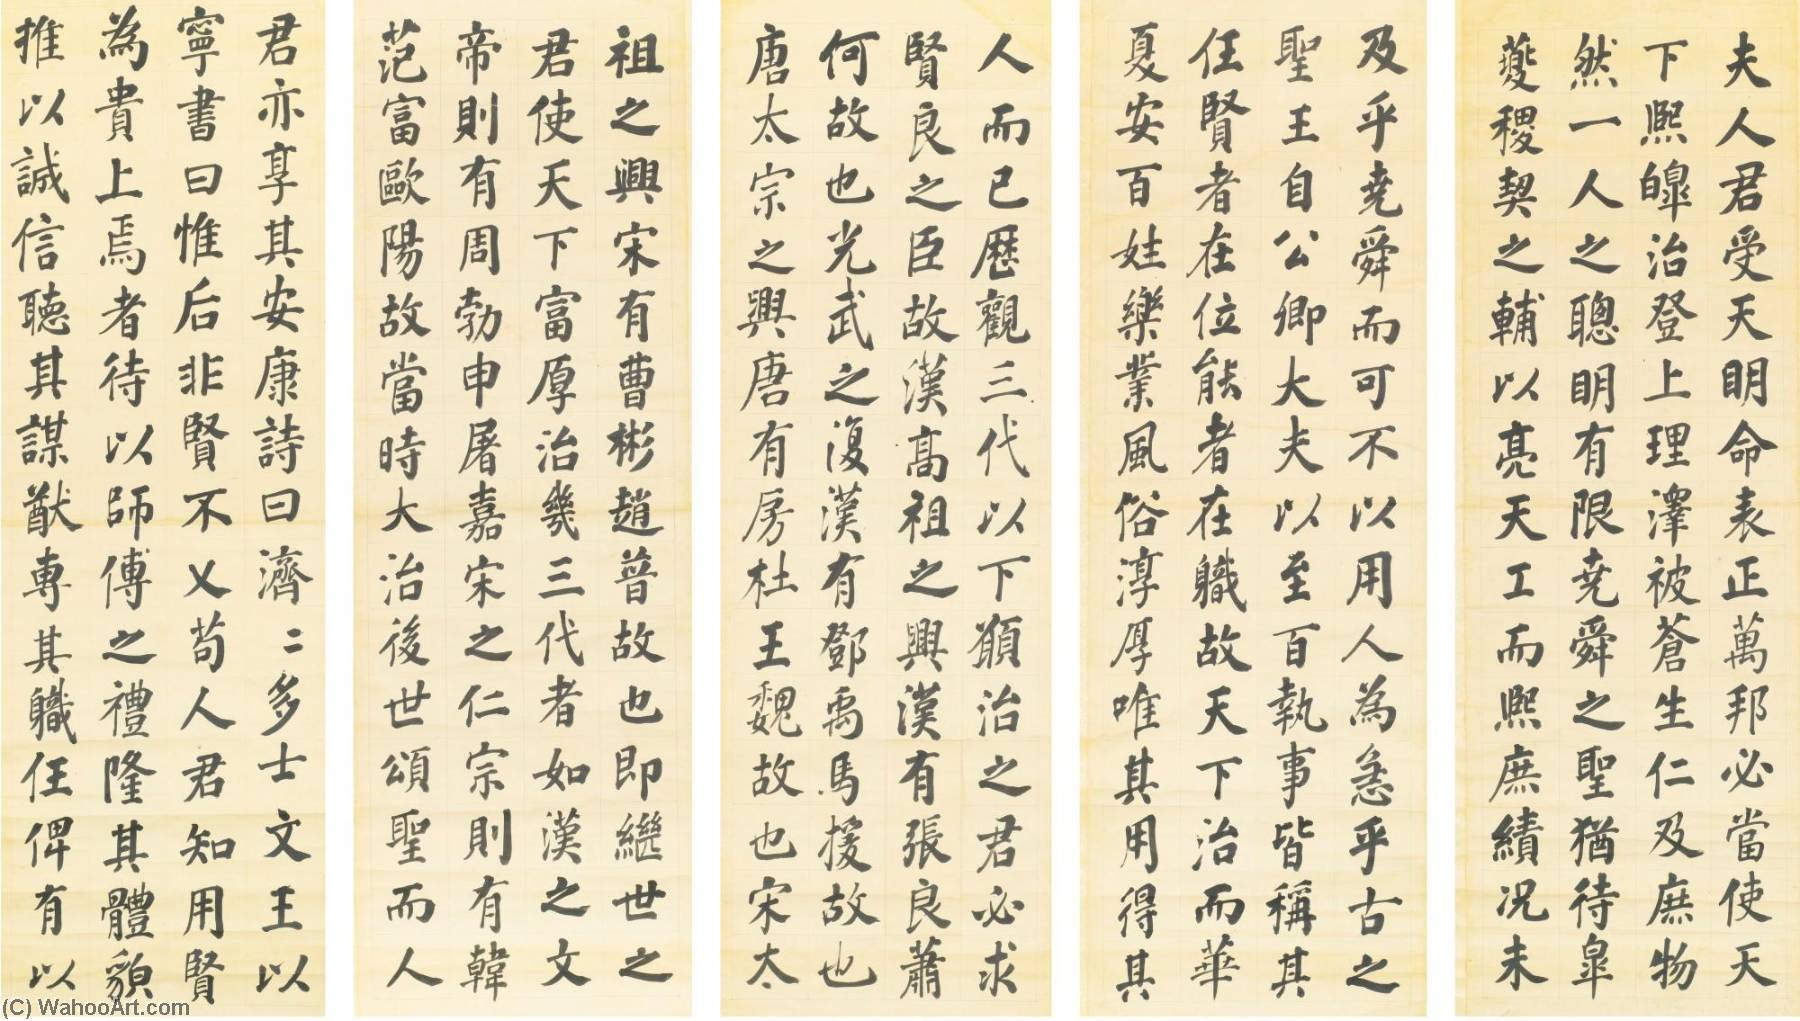 夫人君受天明命表正萬邦必當使天
下熙皥治登上理澤被蒼生仁及庶物
然一人之聰明有限堯舜之聖猶待皐
夔稷契之輔以亮天工而熙庶績况未
及乎堯舜而可不以用人為急乎古之
聖王自公卿大夫以至百執事皆稱其
任賢者在位能者在職故天下治而華
夏安百姓樂業風俗淳厚唯其用得其
人而已歷觀三代以下願治之君必求
賢良之臣故漢高祖之興漢有張良蕭
何故也光武之復漢有鄧禹馬援故也
唐太宗之興唐有房杜王魏故也宋太
祖之興宋有曹彬趙普故也即繼世之
君使天下富厚治幾三代者如漢之文
帝則有周勃申屠嘉宋之仁宗則有韓
范富歐陽故當時大治後世頌聖而人
君亦享其安康詩曰濟二多士文王以
寧書曰惟后非賢不乂苟人君知用賢
為貴上焉者待以師傅之禮隆其體貌
推以誠信聽其謀猷專其職任俾有以
(C) WahooArt.com